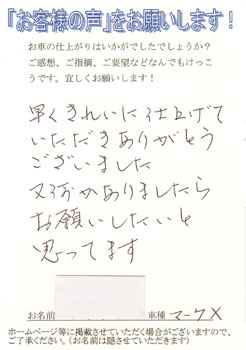 「お客様の声」をお願いします！
お車の仕上がりはいかがでしたでしょうか？
ご感想、ご指摘、ご要望などなんでもけっこ
うです。宜しくお願いします！
早くきれいに仕上げて
いただきありがとう
ございました
又何かありましたら
お願いしたいと
思ってます
お名前
車種 マークX
ホームページ等に掲載させていただく場合がございますので、
ご了承ください。（お名前は隠させていただきます）